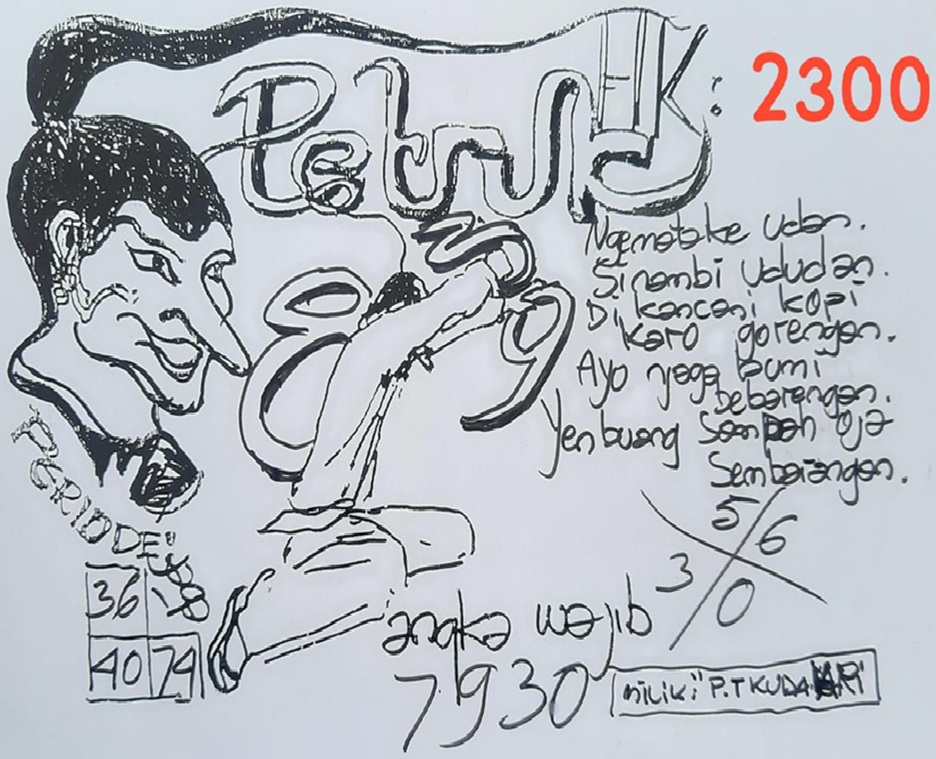 Petruk HK: 2300
Eng
Ngematake udan.
Sinambi ududan.
Di kancani kopi
karo gorengan.
Ayo njaga bumi
bebarengan.
Yen buang sampah oja
Sembarangan.
PERIODE"
5
3 6
0
36 18
40 74
angka wajib
7930
MILIKi" P.T KUDA LARi